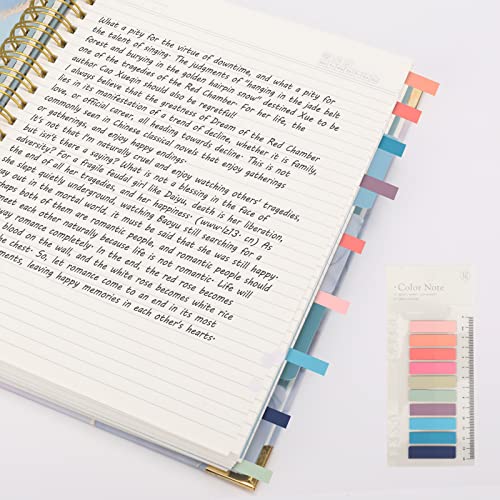 What a pity for the virtue of downtime, and what a pity for
the talent of singing. The judgments of "hanging in the jade belt
forest and burying in the golden hairpin snow" destined Xue to be
one of the tragedies of the Red Chamber. For her life, the
author Cao Xueqin should also be regretful.
always believe that the greatness of Dream of the Red Chamber
lies in its manifestation of a trend of decline, whether it is family,
love, or official career, all heading towards decline. This is not
commonly seen in Chinese classical novels that enjoy gatherings
or gatherings, and enjoy happy endings.
It's not that I'm naturally cruel and enjoy watching others' tragedies,
but isn't there a saying? What is not a blessing in the face of
adversity? For a fragile faudal girl like Daiyu, death is her liberation,
the end of all her tragedies, and her happiness. (www.lz13. cn) As
she slept quietly underground, watching Baoyu still searching for a
way out in the mortal world, it must be said that she was still happy.
haps both of them are romantic people, and romantic people
meet each other naturally because life is not romantic. Life will
y romance completely. In the end, the red rose becomes
blood on the wall, and the white rose becomes white rice
the chest. So, let romance come to an end in its most
ments, leaving happy memories in each other's hearts.
Color Note